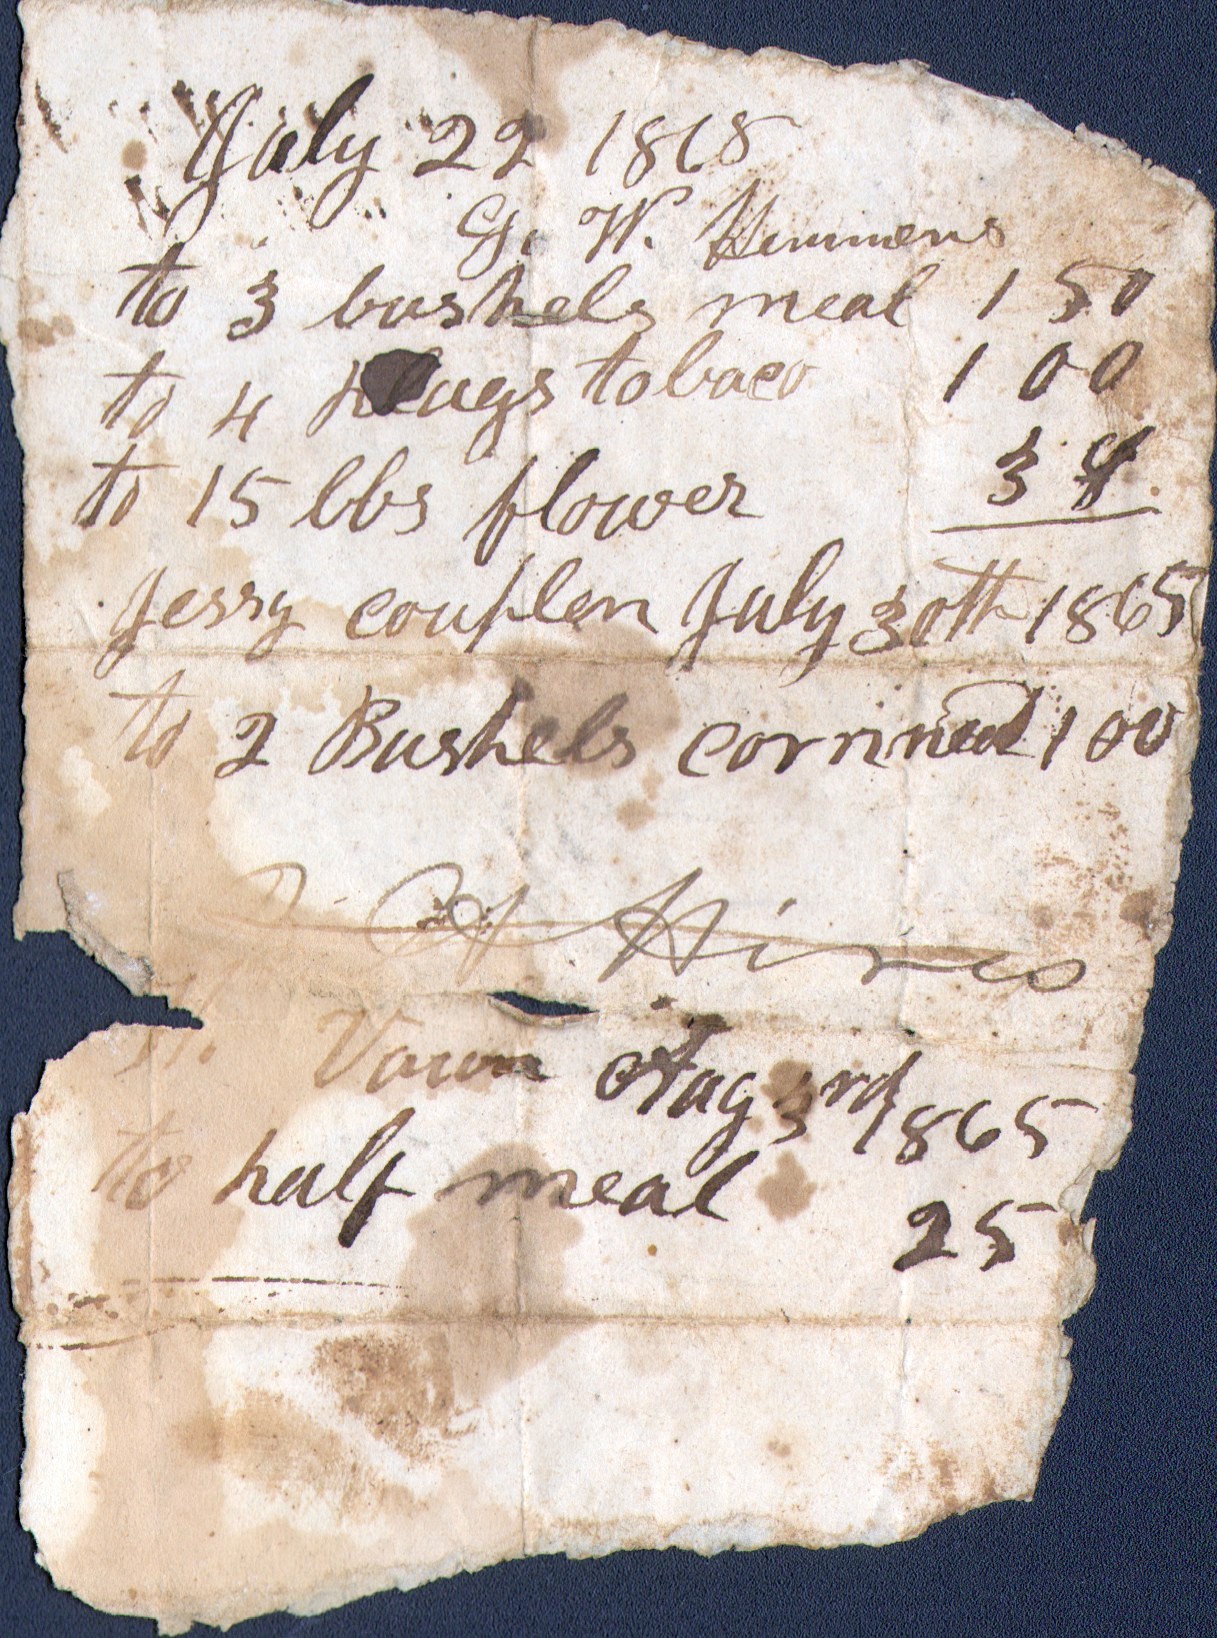 July 22 1868
G. W. Himmens
to 3 bushels meal 1 50
to 4 plugs tobaco 1 00
to 15 lbs flower 3
Jessy couplen July 30th 1865
to 2 Bushels cornmeal 1 00
Hines
Vawn Aug 3rd 1865
to half meal
25